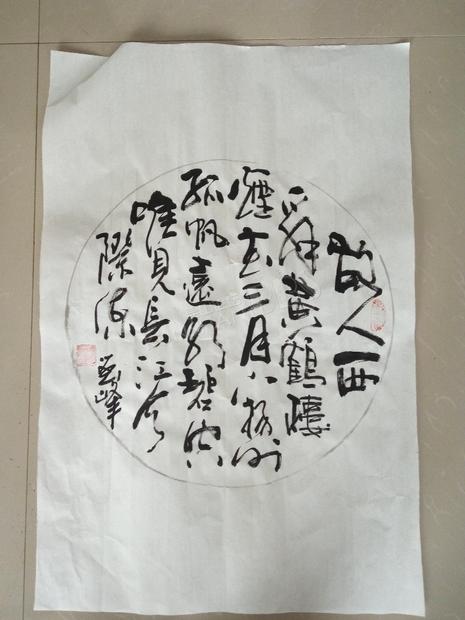 故人西
辞黄鶴樓
煙花三月下揚州
孤帆遠影碧空
唯見長江天
際流
峰